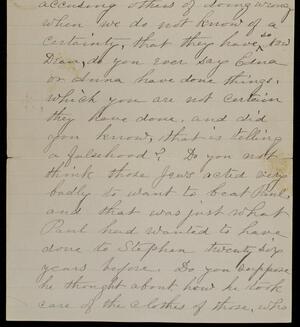 accusing others of doing wrong
when we do not know of a
certainty, that they have so
Dear, do you ever say Edna
or Anna have done things,
which you are not certain
they have done, and did
you know, that is telling
a falsehood? Do you not
think those Jews acted very
badly to want to beat Paul,
and that was just what
Paul had wanted to have
done to Stephen twenty six
years before. Do you suppose
he thought about how he took
care of the clothes of those, who